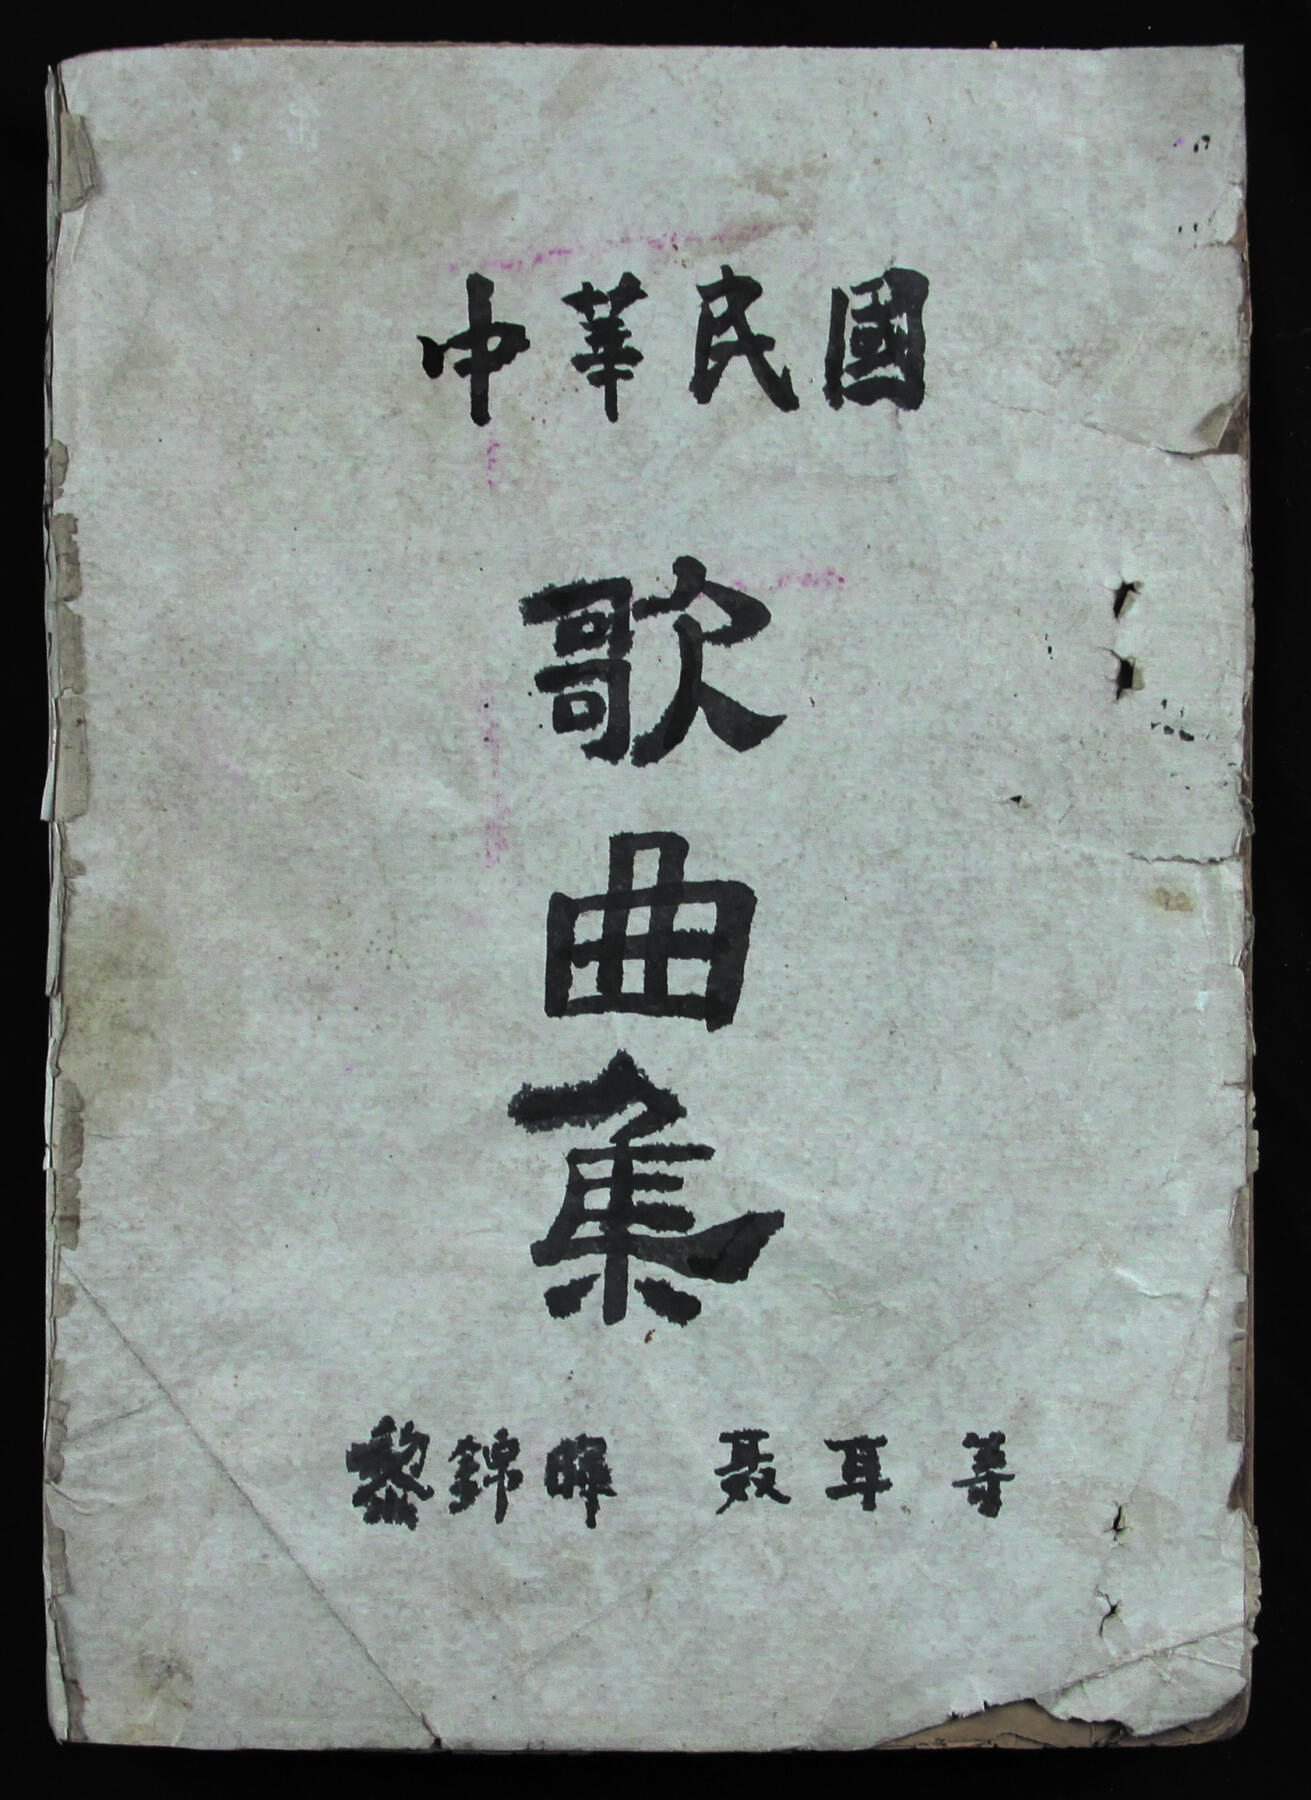 中華民國
歌
曲
集
黎錦暉 聶耳等